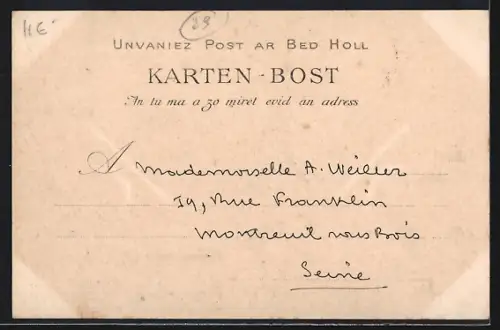 4€-
29
UNVANIEZ POST AR BED HOLL
KARTEN-BOST
An tu ma a zo miret evid an adress
A Mademoiselle A. Weiller
79, Rue Franklin
Montreuil sous Bois
Seine